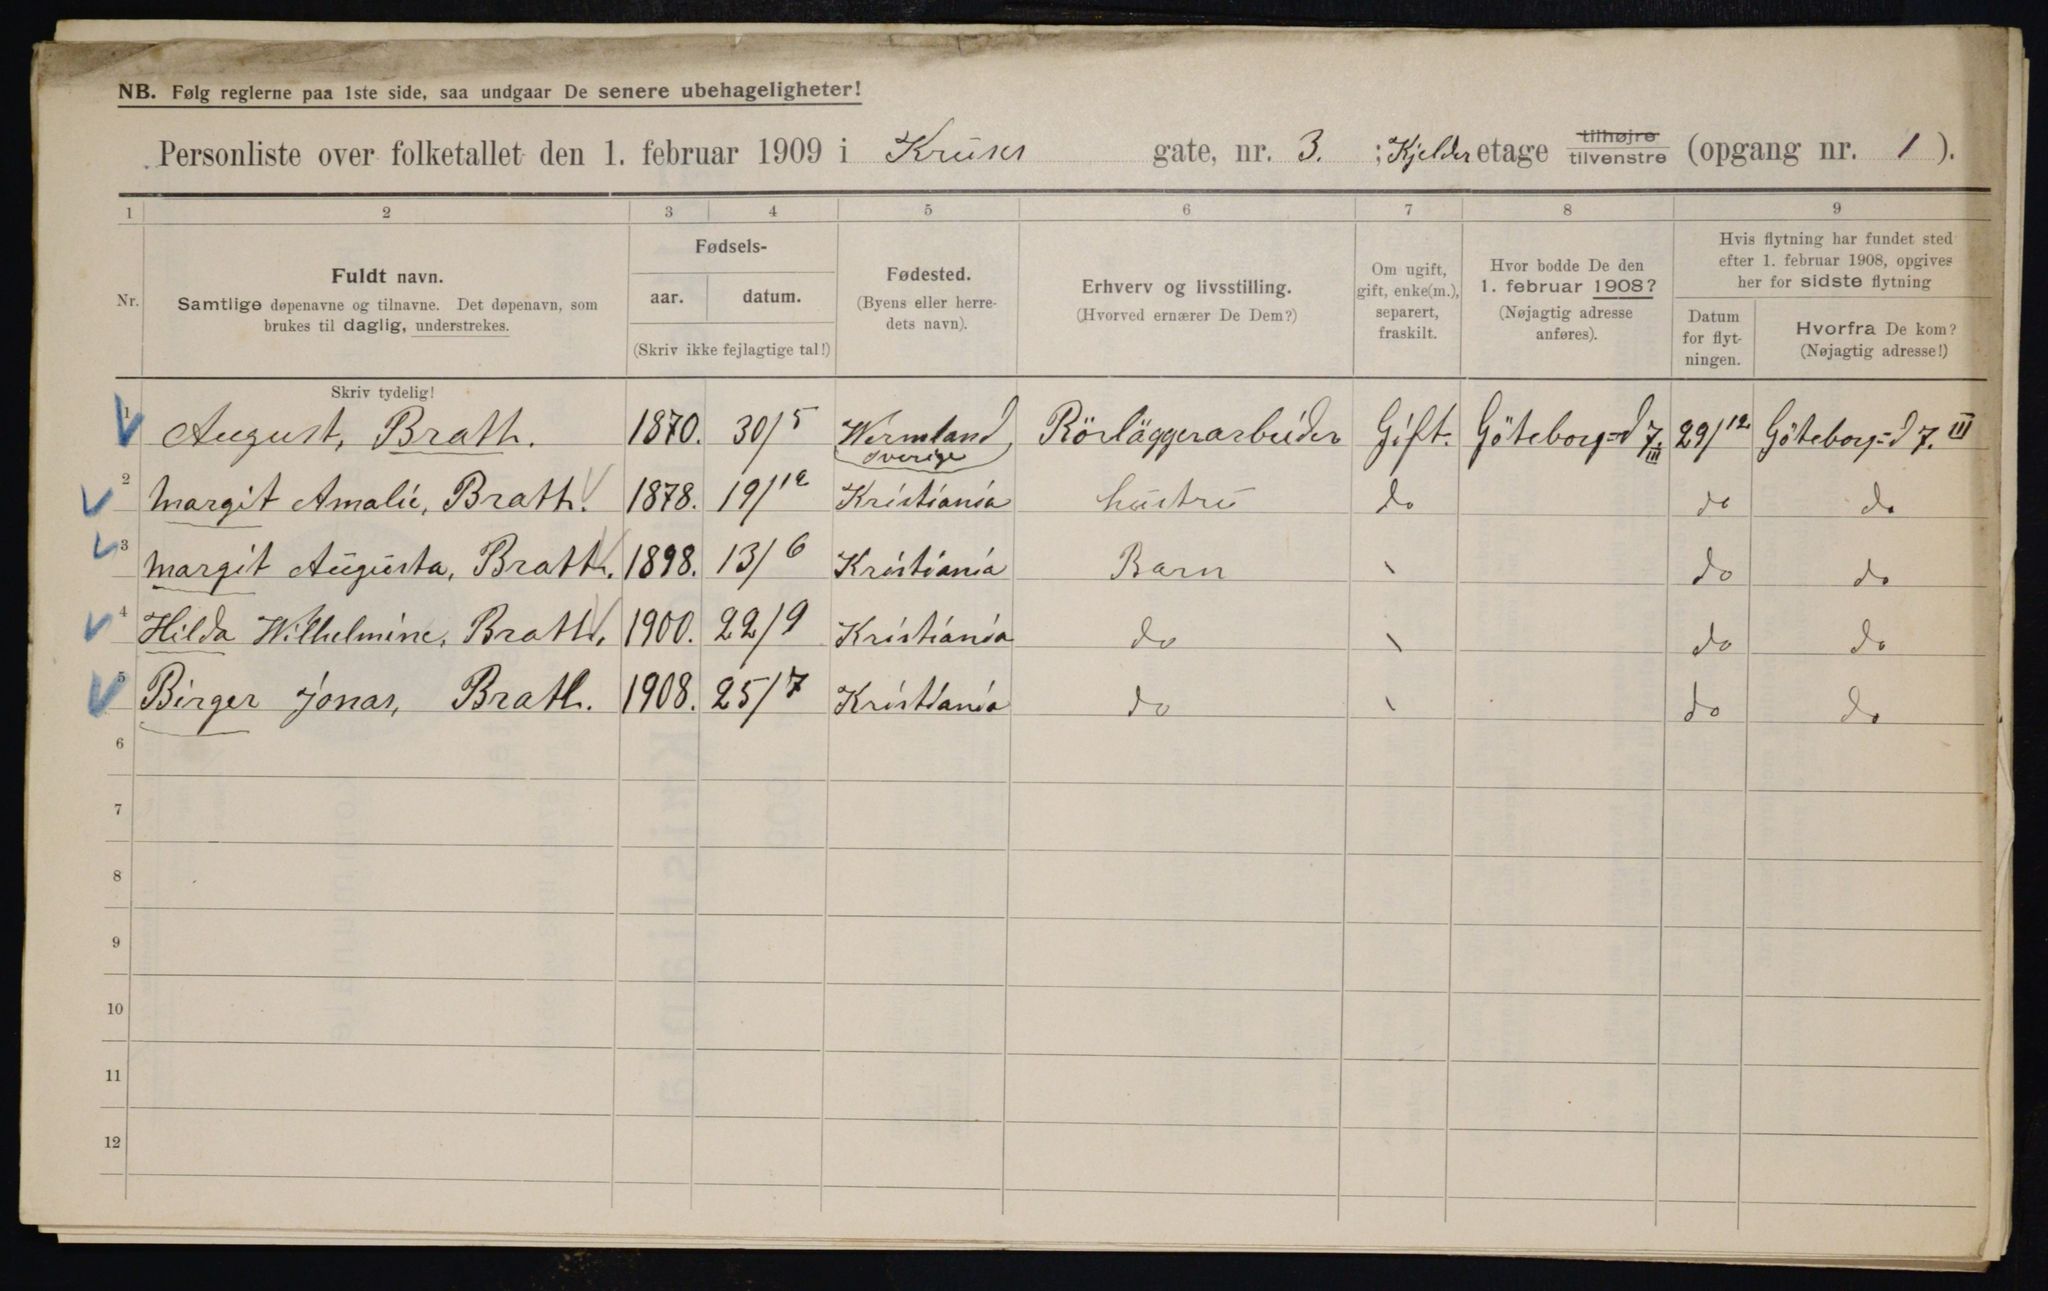 NB. Følg reglerne paa 1ste side, saa undgaar De senere ubehageligheter!
Personliste over folketallet den 1. februar 1909 i Kruses gate, nr. 3. ; Kjelder etage tilhøjre tilvenstre (opgang nr. 1 ).
1 2 3 4 5 6 7 8 9
Nr.
Fuldt navn.
Samtlige døpenavne og tilnavne. Det døpenavn, som
brukes til daglig, understrekes.
Fødsels-
aar. datum.
(Skriv ikke fejlagtige tal!)
Fødested.
(Byens eller herre-
dets navn).
Erhverv og livsstilling.
(Hvorved ernærer De Dem?)
Om ugift,
gift, enke(m.),
separert,
fraskilt.
Hvor bodde De den
1. februar 1908?
(Nøjagtig adresse
anføres).
Hvis flytning har fundet sted
efter 1. februar 1908, opgives
her for sidste flytning
Datum
for flyt-
ningen.
Hvorfra De kom?
(Nøjagtig adresse!)
Skriv tydelig!
1 August, Brath. 1870. 30/5 Wermland Sverige Rörläggerarbeider Gift. Göteborg=d 7. III 29/12 Göteborg=d 7. III
2 Margit Amalie, Brath. 1878. 19/12 Kristiania hustru do do do
3 Margit Augusta, Brath. 1898. 13/6 Kristiania Barn \ do do
4 Hilda Wilhelmine, Brath. 1900. 22/9 Kristiania do \ do do
5 Birger Jonas, Brath. 1908. 25/7 Kristiania do \ do do
6
7
8
9
10
11
12